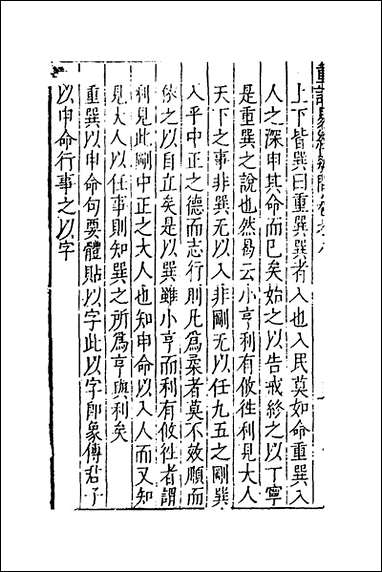 重訂易經疑問卷之八
上下皆巽曰重巽巽者入也入民莫如命重巽入
人之深申其命而已矣始之以告戒終之以丁寧
是重巽之說也然曷云小亨利有攸往利見大人
天下之事非巽无以入非剛无以任九五之剛巽
入乎中正之德而志行則凡為柔者莫不效順而
依之以自立矣是以巽雖小亨而利有攸往者謂
利見此剛中正之大人也知申命以入人而又知
見大人以任事則知巽之所為亨與利矣
重巽以申命句要體貼以字此以字即象傳君子
以申命行事之以字